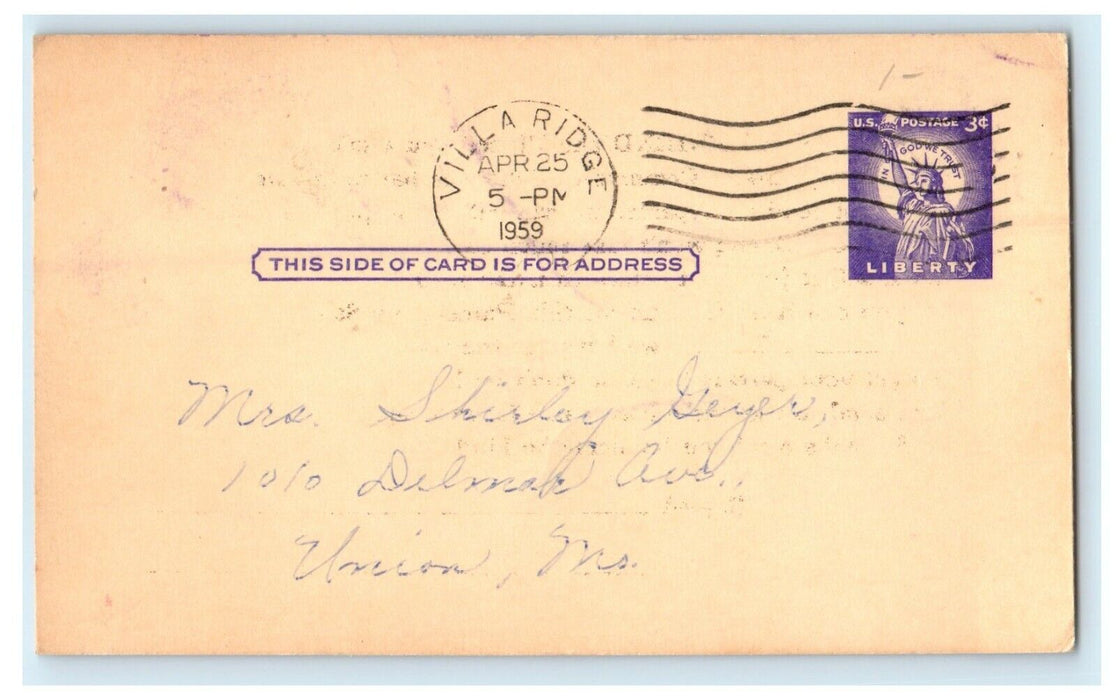 1-
VILLA RIDGE
APR 25
5 -PM
1959
U.S. POSTAGE 3¢
IN GOD WE TRUST
LIBERTY
THIS SIDE OF CARD IS FOR ADDRESS
Mrs. Shirley Geyer,
1010 Delmar Ave.,
Union, Mo.